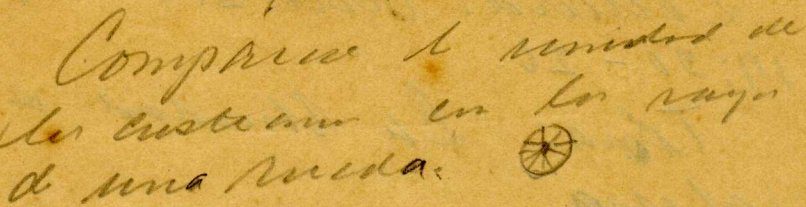 Compárese l unidad de
los cristianos con los rayos
de una rueda.